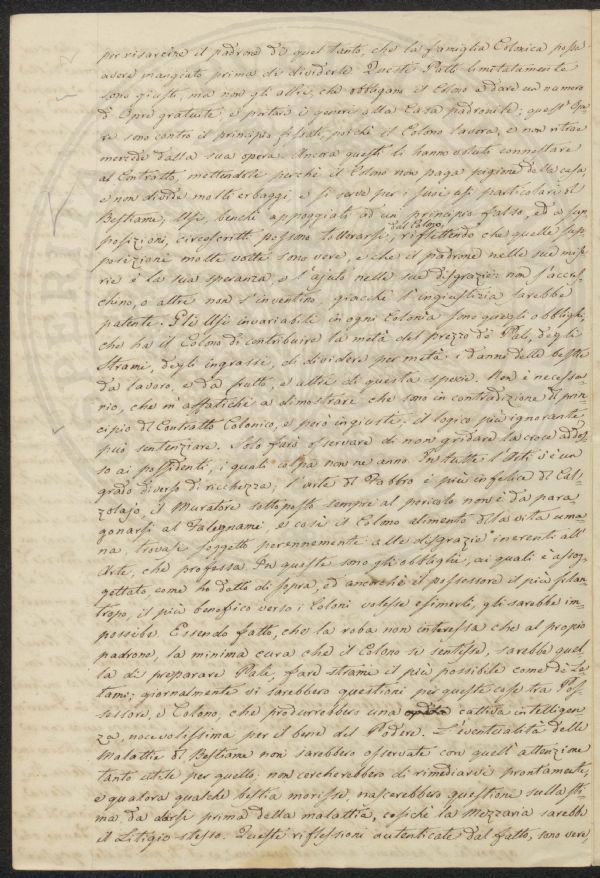 per risarcire il padrone di quel tanto, che la famiglia Colonica possa
avere mangiato prima di dividerle. Questi Patti limitatamente
sono giusti, ma non gli altri, che obbligano il Colono a dare un numero
d'Opre gratuite, e portare i generi alla Casa padronile; quest'Ope-
re sono contro il principio fissati, poichè il Colono lavora, e non ritrae
mercede dalla sua opera. Ancora questi li hanno voluti connestare
al Contratto, mettendole perchè il Colono non paga pigione della casa,
e non divide molti erbaggi, e si serve per i suoi usi particolari il
Bestiame; Usi, benchè appoggiati ad un principio falso, ed a sup-
posizioni, circoscritti possono tollerarsi dal Colono, riflettendo che quelle sup-
posizione molte volte sono vere, e che il padrone nelle sue mise-
rie è la sua speranza, e l'ajuto nelle sue disgrazie: non s'accres-
chino, o altre non s'inventino, giacchè l'ingiustizia sarebbe
patente. Gli Usi invariabili in ogni Colonìa sono quegli obblighi,
che ha il Colono di contribuire la metà del prezzo di Pali, degli
Strami, degl'ingrassi, di dividere per metà i danni delle bestie
da lavoro, e da frutto, e altri di questa spezie. Non è necessa-
rio, che m'affatichi a dimostrare che sono in contradizione di prin-
cipio di Contratto Colonico, e però ingiusti; il logico più ignorante
può sentenziare. Solo farò osservare di non gridare la croce addos-
so ai possidenti, i quali colpa non ne anno. In tutte l'Arti v'è un
grado diverso di ricchezza; l'arte di Fabbro è più infelice di Cal-
zolajo, il Muratore sottoposto sempre al pericolo non è da para-
gonarsi al Falegname, e così il Colono alimento della vita uma-
na, trovasi soggetto perennemente alle disgrazie inerenti all'
Arte, che professa. In queste sono gli obblighi, ai quali è assog-
gettato, come ho detto di sopra, ed ancorchè il possessore il più filan-
tropo, il più benefico verso i Coloni volesse esimerli, gli sarebbe im-
possibile. Essendo fatto, che la roba non interessa che al proprio
padrone, la minima cura che il Colono si sentisse, sarebbe quel-
la di preparare Pali, fare strame il più possibile come di Le-
tami; giornalmente vi sarebbero questioni per queste cose tra Pos-
sessore, e Colono, che produrrebbero una cattiva intelligen-
za, nocevolissima per il bene del Podere. L'eventualità delle
Malattie di Bestiame non sarebbero osservate con quell'attenzione
tanto utile per quelle; non cercherebbero di rimediarvi prontamente,
e qualora qualche bestia morisse, nascerebbero questione sulla sti-
ma da darsi prima della malattia, cosichè la Mezzaria sarebbe
il Litigio stesso. Queste riflessioni autenticate dal fatto, sono vere,